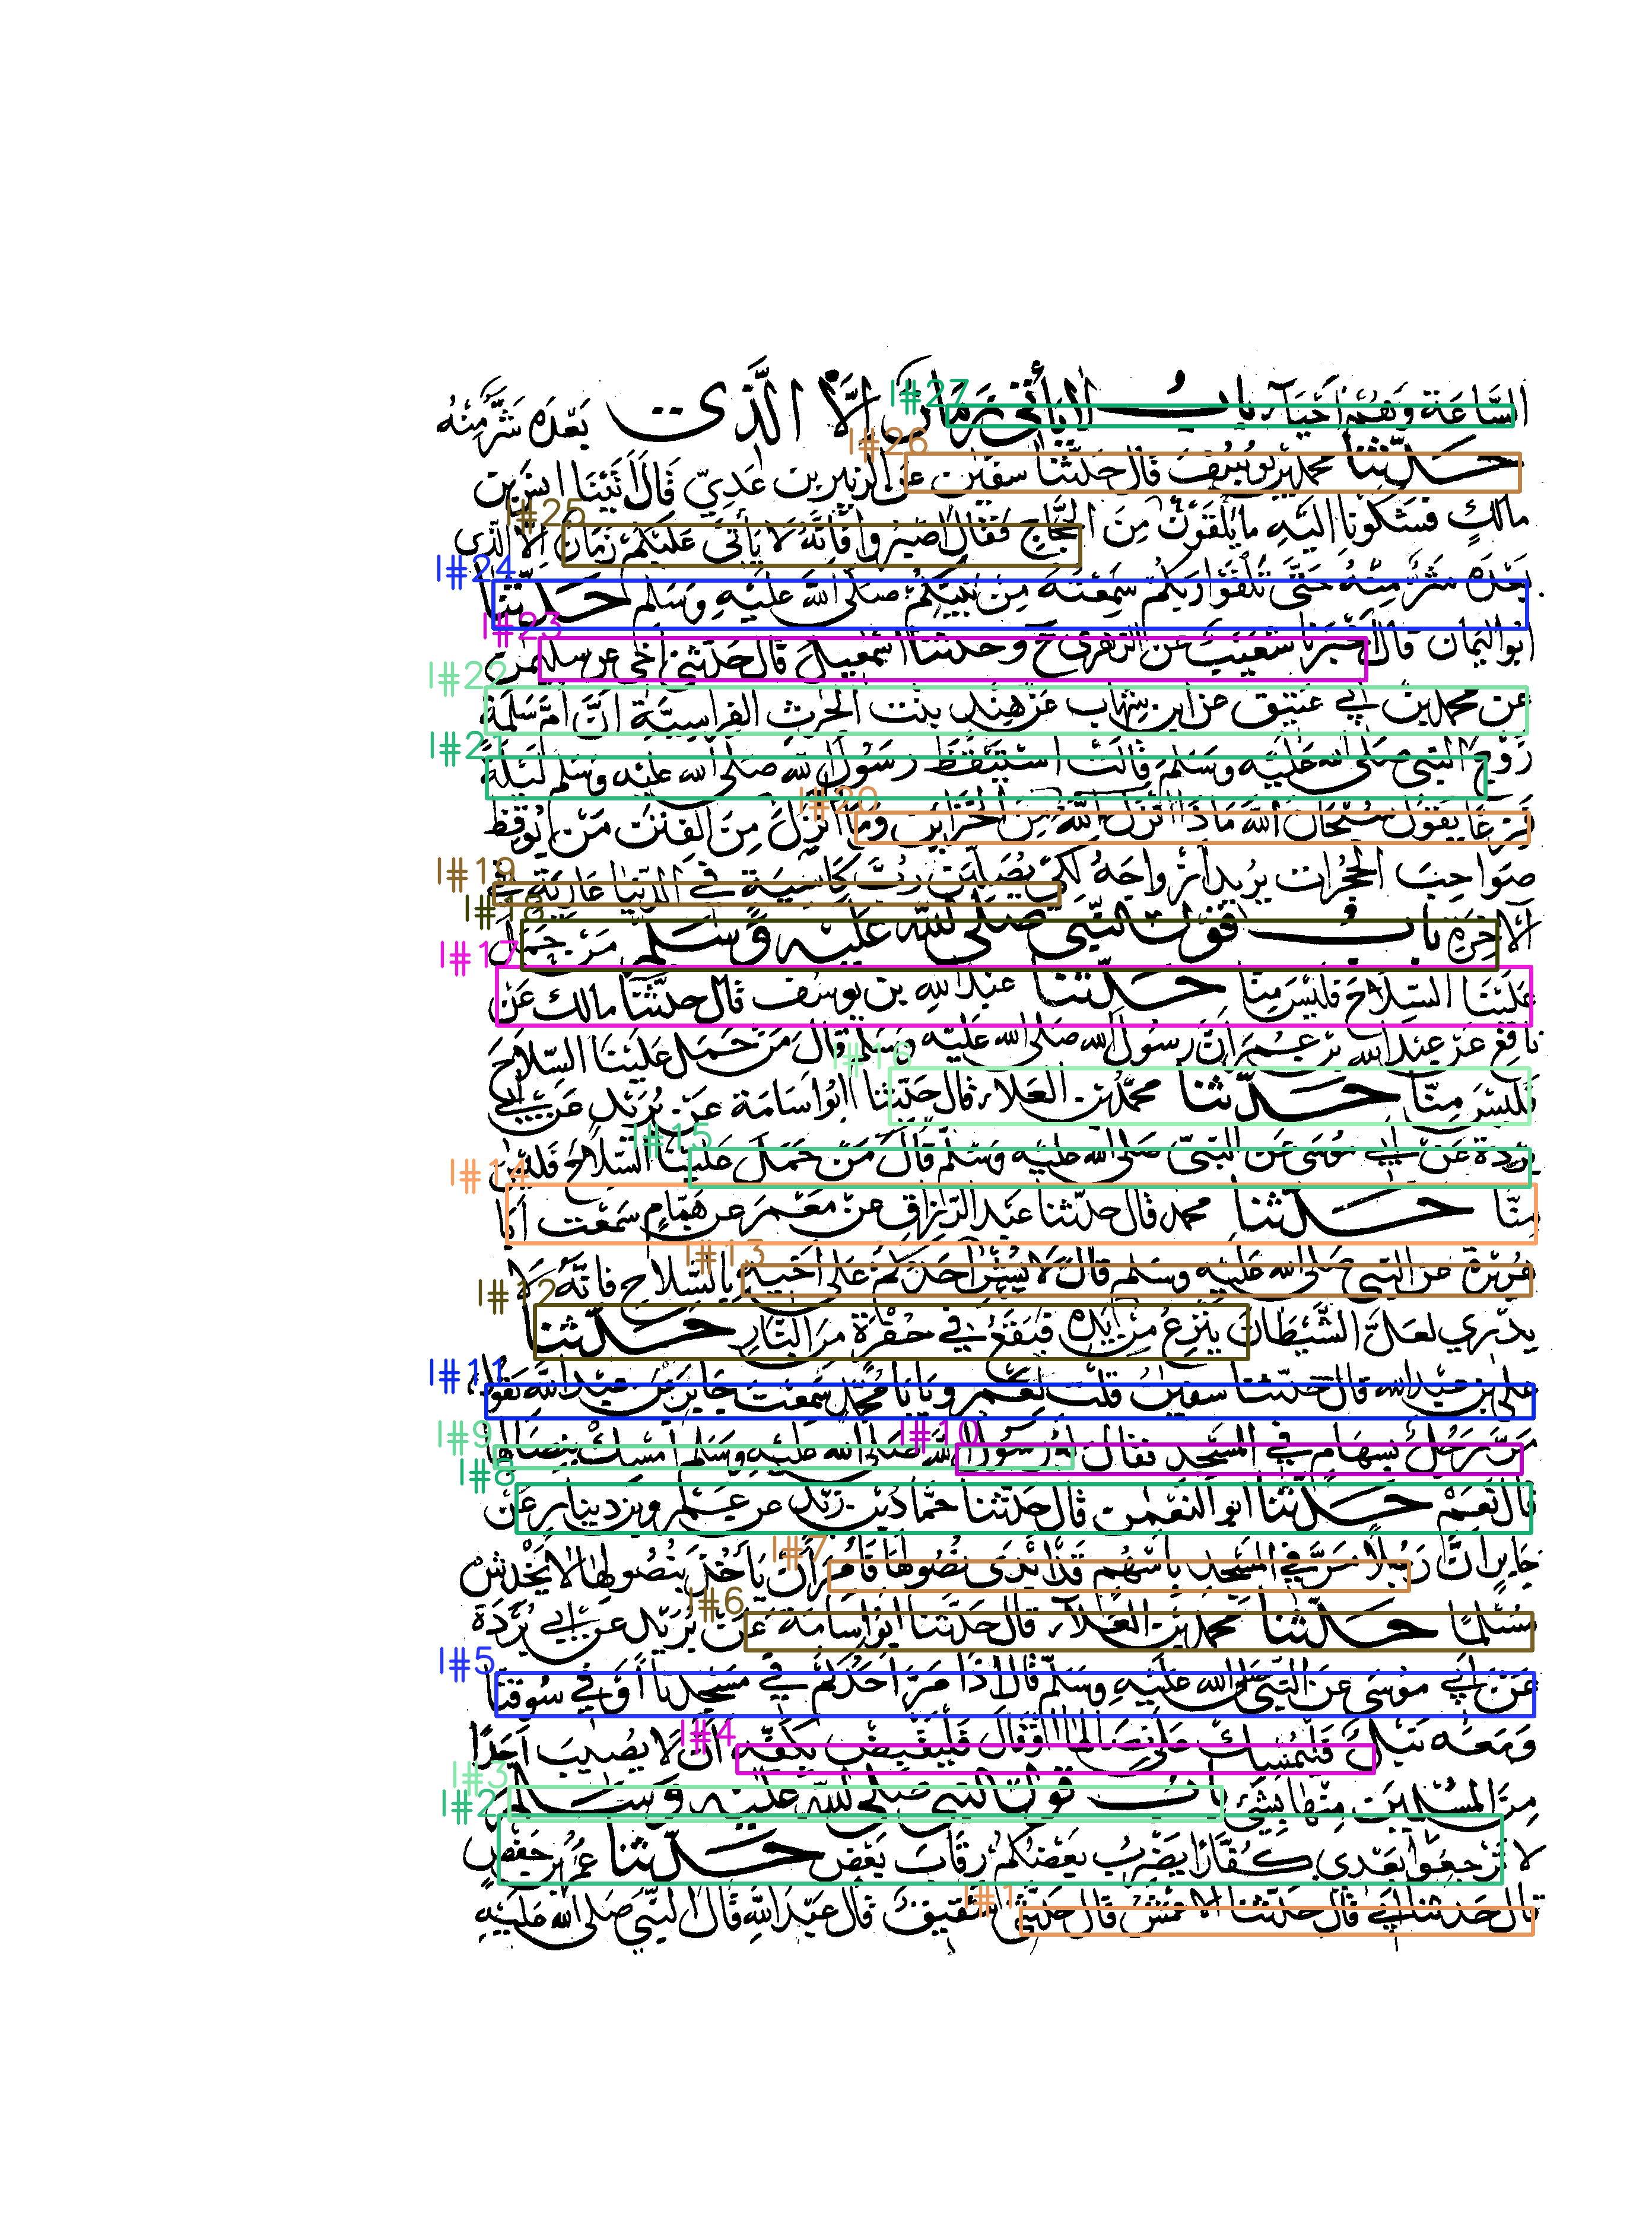 السَّاعَة وَهُمْ أَحْيَآء باب لا يأتي زمان إلا الذي بعده شَرٌّ مِنْهُ
حدثنا محمد بن يوسف قال حدثنا سفين عن الزبير بن عدي قال أتينا انس بن
مالك فشكونا اليه ما يلقون من الحجاج فقال اصبروا فانه لا يأتي عليكم زمان الا الذي
بعده شر منه حتى تلقوا ربكم سمعته من نبيكم صلى الله عليه وسلم حدثنا
ابو اليمان قال اخبرنا شعيب عن الزهري ح وحدثنا اسمعيل قال حدثني اخي عن سليمن
عن محمد بن ابي عتيق عن ابن شهاب عن هند بنت الحرث الفراسية ان ام سلمة
زوج النبي صلى الله عليه وسلم قالت استيقظ رسول الله صلى الله عليه وسلم ليلة
فزعا يقول سبحان الله ماذا انزل الله من الخزاين وما انزل من الفتن من يوقظ
صواحب الحجرات يريد ازواجه لكي يصلين رب كاسية في الدنيا عارية في
الاخره باب قول النبي صلى الله عليه وسلم من حمل
علينا السلاح فليس منا حدثنا عبد الله بن يوسف قال حدثنا مالك عن
نافع عن عبد الله بن عمر ان رسول الله صلى الله عليه وسلم قال من حمل علينا السلاح
فليس منا حدثنا محمد بن العلاء قال حدثنا ابو اسامة عن بريد عن ابي
بردة عن ابي موسى عن النبي صلى الله عليه وسلم قال من حمل علينا السلاح فليس
منا حدثنا محمد قال حدثنا عبد الرزاق عن معمر عن همام سمعت ابا
هريرة عن النبي صلى الله عليه وسلم قال لا يشير احدكم على اخيه بالسلاح فانه لا
يدري لعل الشيطان ينزع من يده فيقع في حفرة من النار حدثنا
علي بن عبد الله قال حدثنا سفين قلت لعمرو يابا محمد سمعت جابر بن عبد الله يقول
مر رجل بسهام في المسجد فقال له رسول الله صلى الله عليه وسلم امسك بنصالها
قال نعم حدثنا ابو النعمن قال حدثنا حماد بن زيد عن عمرو بن دينار عن
جابر ان رجلا مر في المسجد باسهم قد ابدى نصولها فامر ان ياخذ بنصولها لا يخدش
مسلما حدثنا محمد بن العلآء قال حدثنا ابو اسامة عن بريد عن ابي بردة
عن ابي موسى عن النبي صلى الله عليه وسلم قال اذا مر احدكم في مسجدنا او في سوقنا
ومعه نبل فليمسك على نصالها او قال فليقبض بكفه ان لا يصيب احدا
من المسلمين منها بشيء باب قول النبي صلى الله عليه وسلم
لا ترجعوا بعدي كفارا يضرب بعضكم رقاب بعض حدثنا عمر بن حفص
قال حدثنا ابي قال حدثنا الاعمش قال حدثني شقيق قال عبد الله قال النبي صلى الله عليه